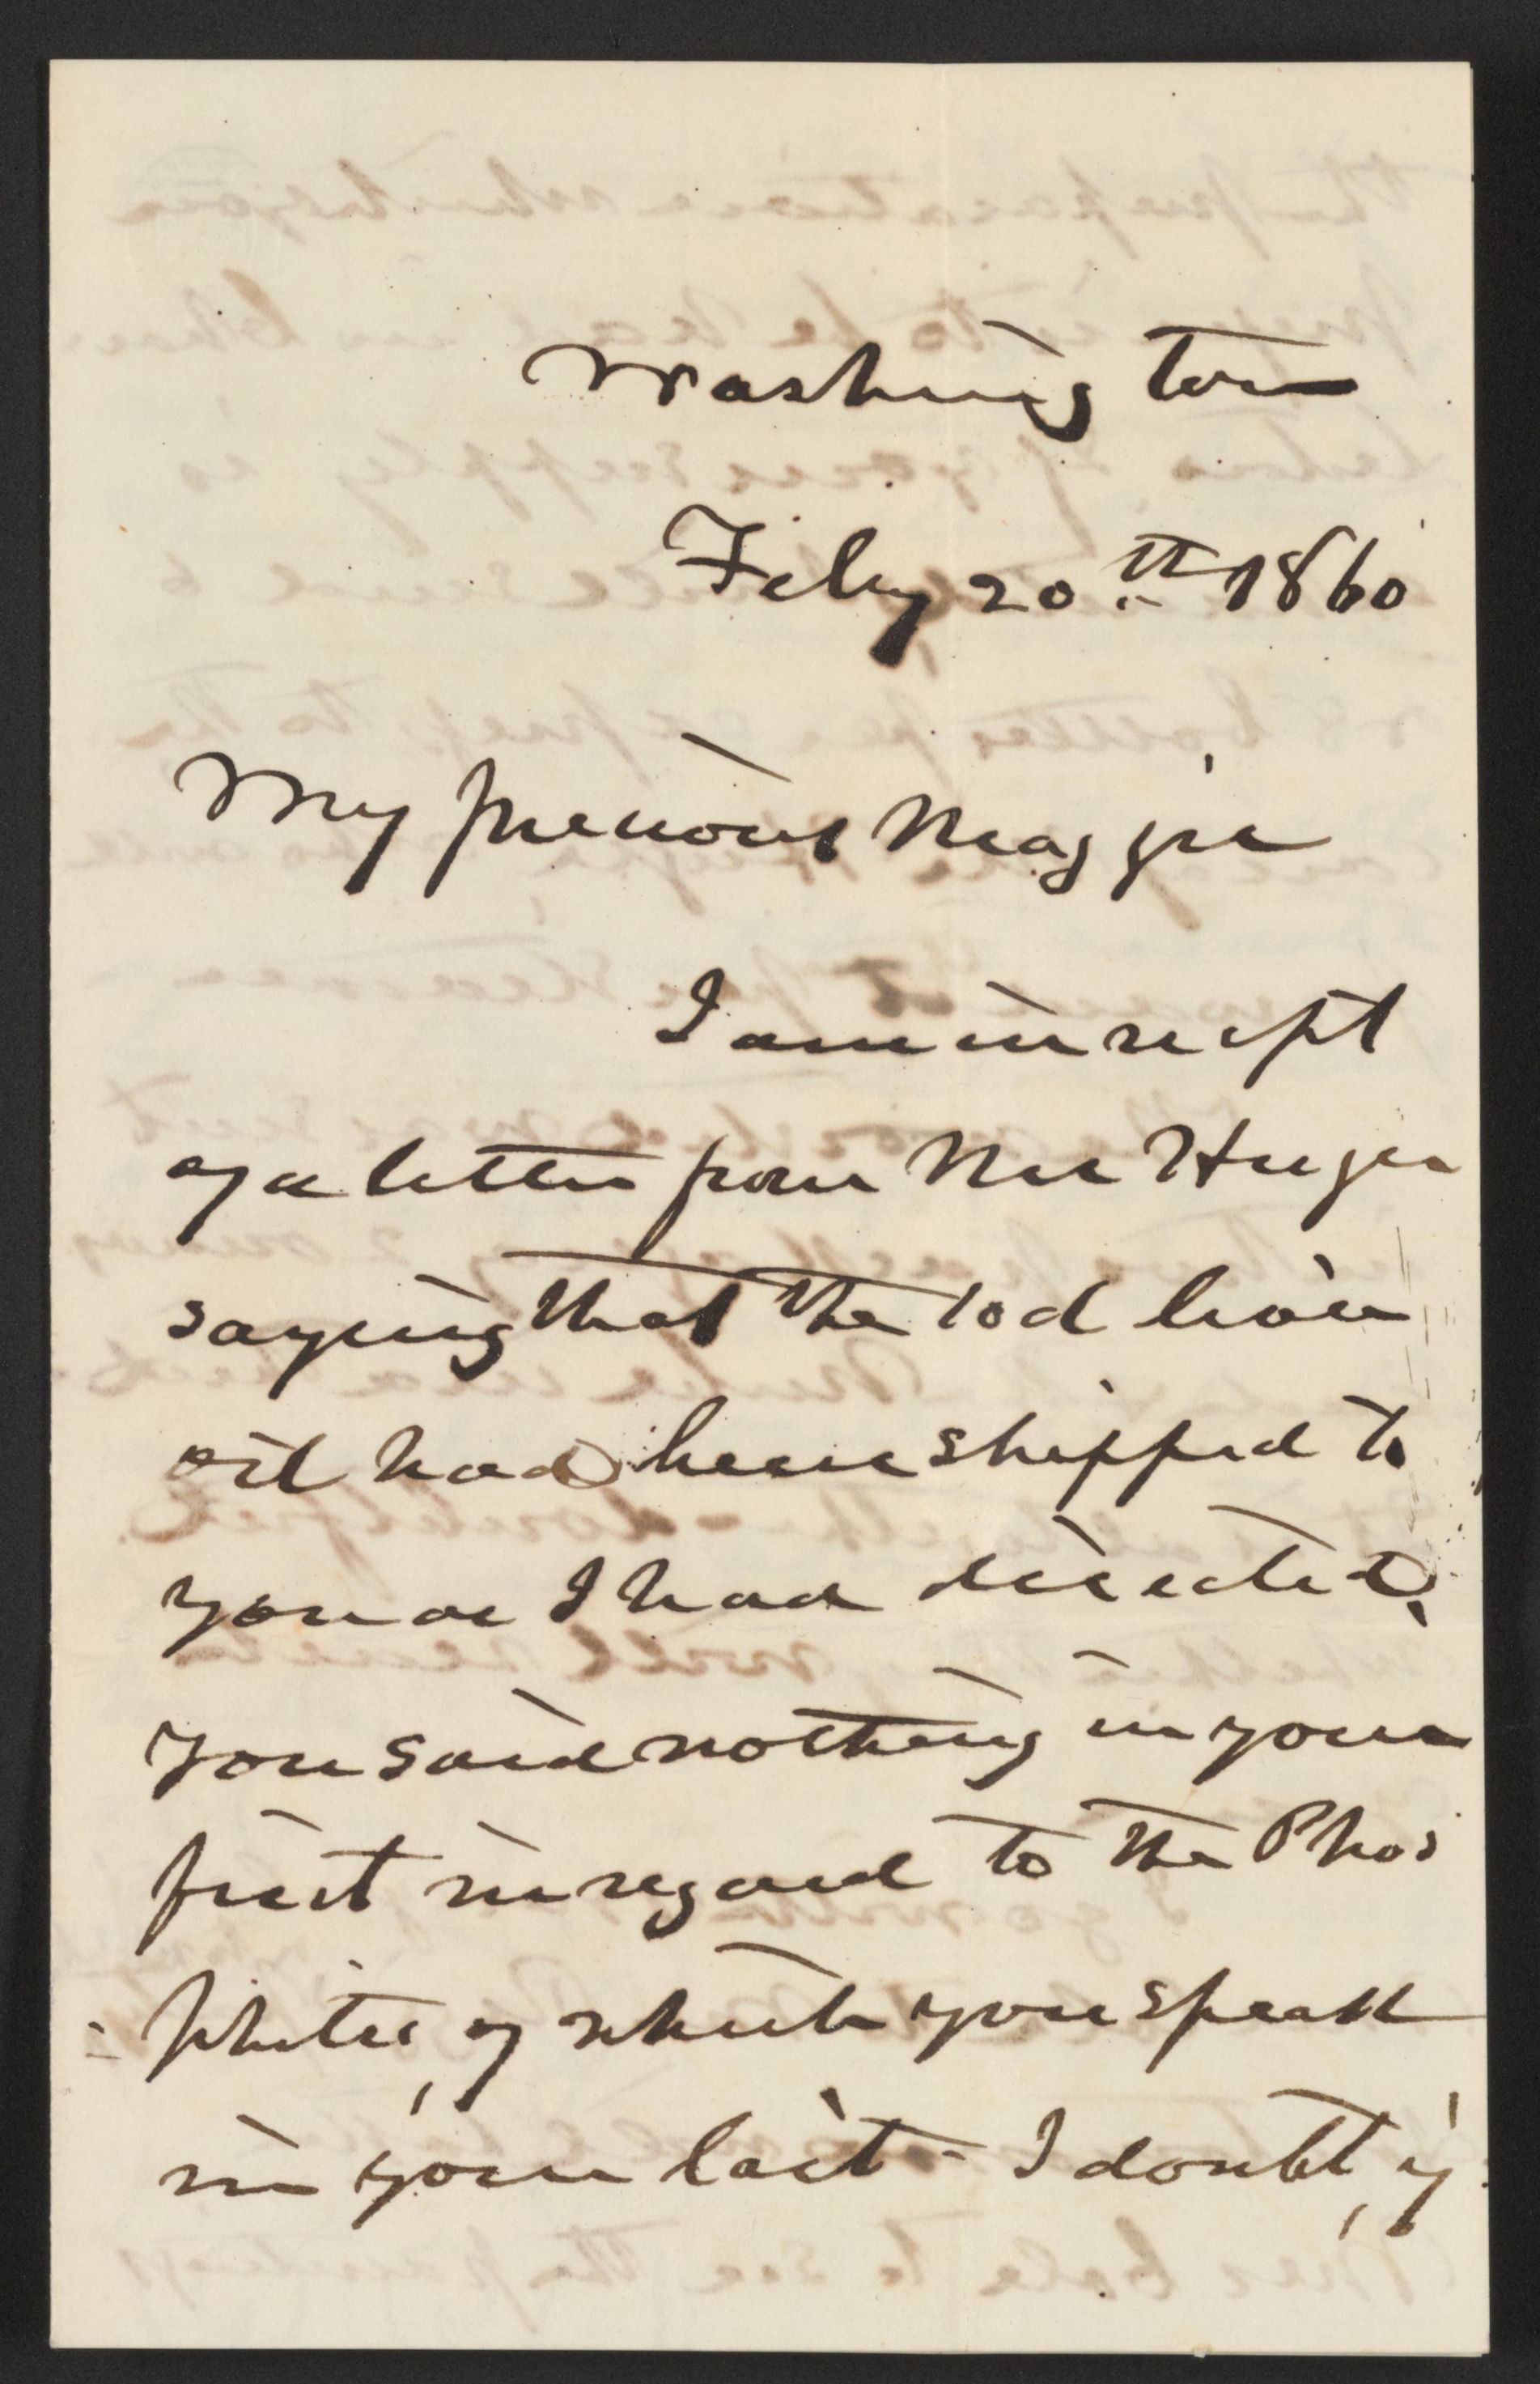 Washington
Feby 20th 1860
My precious Maggie
I am in recpt
of a letter from Mr Huger
saying that the Cod liver
oil had been shipped to
you as I had directed,
You said nothing in your
first in regard to the Phos
phites, of which you speak
in your last - I doubt, if